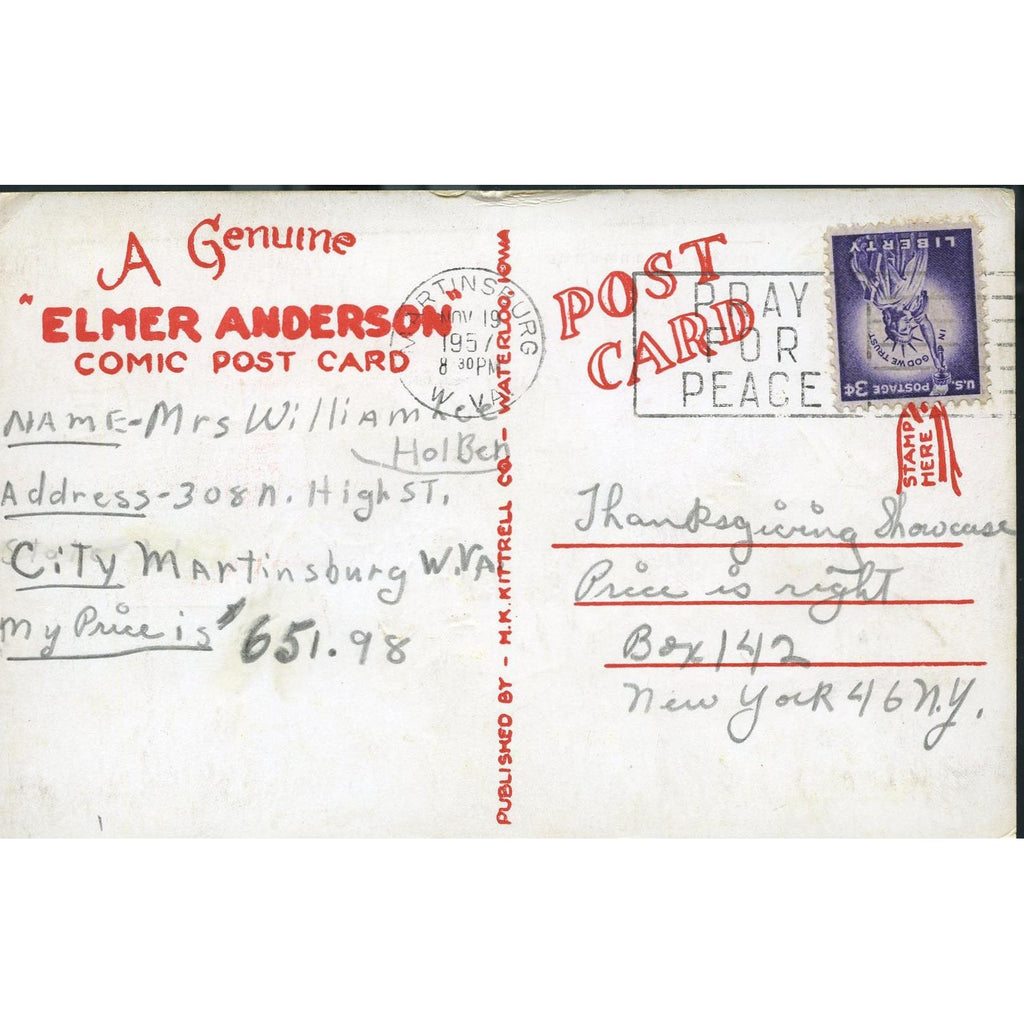 A Genuine
"ELMER ANDERSON"
COMIC POST CARD
NAME-Mrs William Lee
HolBen
Address-308 N. High ST.
CiTy Martinsburg W.VA.
My Price is $651.98
PUBLISHED BY - H.K.KITTRELL CO. - WATERLOO, IOWA
MARTINSBURG
NOV 19
1957
8 30 PM
W. VA.
POST
CARD
PRAY
FOR
PEACE
LIBERTY
IN
GOD WE TRUST
U.S. POSTAGE 3¢
STAMP
HERE
Thanksgiving Showcase
Price is right
Box 142
New York 46 N.Y.